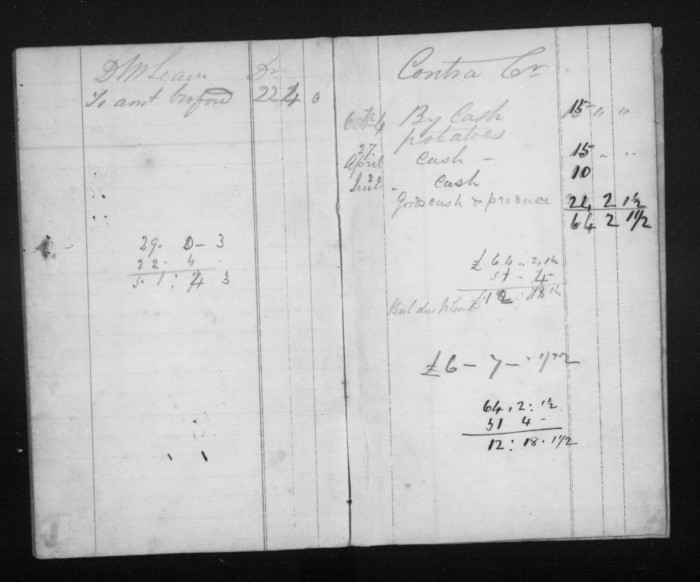 D McLean Dr
To amt forward 22 4 0
29. 0 - 3
22. 4 .
51 : 4 3
Contra Cr
By Cash 15 " "
potatoes
27 April Cash - 15 " "
June 20 Cash 10
Goods cash & produce 24 2 1½
64 2 1½
£ 64 .. 2, 1½
51 - 4 -
£12 : 18 1½
Bal due
£6 - 7 - 1/22
64, 2 : 1½
51 4 -
12 : 18 . 1½